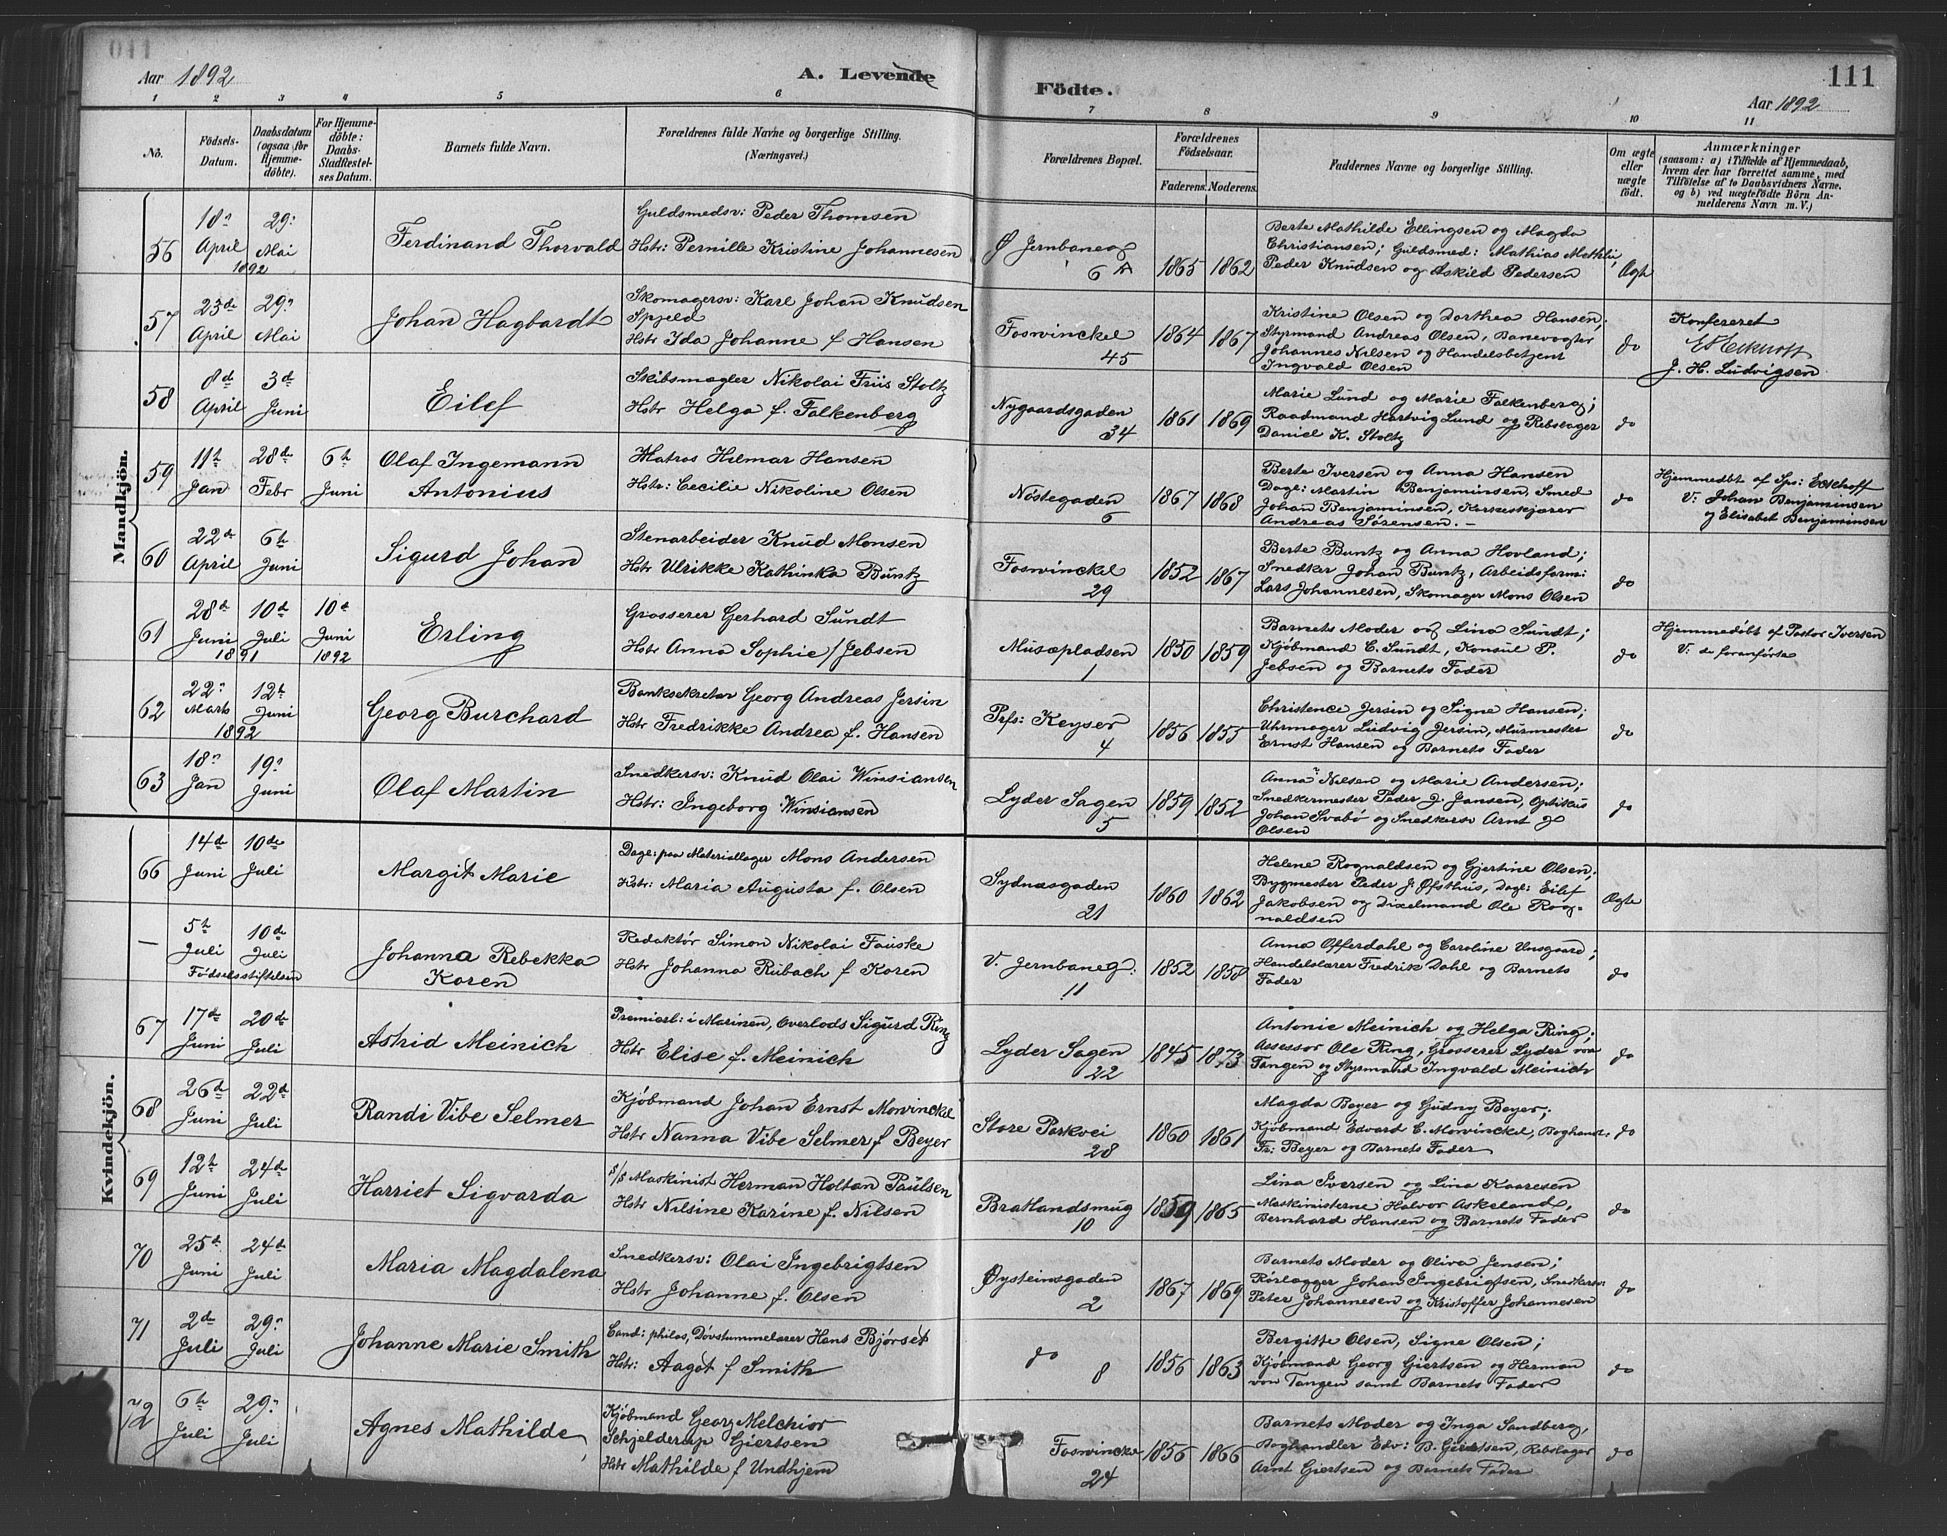 Aar 1892
A. Levende
Födte.
111
Aar 1892
1 2 3 4 5 6 7 8 9 10 11
No.
Födsels-Datum.
Daabsdatum (ogsaa for Hjemme-döbte).
For Hjemme-döbte: Daabs-Stadfæstel-ses Datum.
Barnets fulde Navn.
Forældrenes fulde Navne og borgerlige Stilling. (Næringsvei.)
Forældrenes Bopæl.
Forældrenes Födselsaar.
Faderens. Moderens.
Faddernes Navne og borgerlige Stilling.
Om ægte eller uægte födt.
Anmærkninger
(saasom: a) i Tilfælde af Hjemmedaab,
hvem der har forrettet samme, med
Tilföielse af to Daabsvidners Navne.
og b) ved uægtefödte Börn An-
melderens Navn m. V.)
Mandkjön.
56 18' April 29' Mai 1892
Ferdinand Thorvald
Guldsmedsv: Peder Thomsen
Hstr: Pernille Kristine Johannesen
Ø Jernbaneg 6 A
1865 1862
Berte Mathilde Ellingsen og Magda
Christiansen; Guldsmed: Mathias
Peder Knudsen og Askild Pedersen
Ægte
57 23de April 29' Mai
Johan Hagbardt
Skomagersv: Karl Johan Knudsen
Spjeld
Hstr Ida Johanne f Hansen
Foswinckel 45
1864 1867
Kristine Olsen og Dorthea Hansen;
Styrmand Andreas Olsen, Banevogter
Johannes Nilsen og Handelsbetjent
Ingvald Olsen
do
Konfereret
Eckhoff
J. H. Ludvigsen
58 8d April 3de Juni
Eilef
Skibsmægler Nikolai Friis Stoltz
Hstr Helga f. Falkenberg
Nygaardsgaden 34
1861 1869
Marie Lund og Marie Falkenberg;
Raadmand Hartvig Lund og Rebslager
Daniel K. Stoltz
do
59 11te Jan 28de Febr 6te Juni
Olaf Ingemann
Antonius
Matros Hilmar Hansen
Hstr: Cecilie Nikoline Olsen
Nöstegaden 6
1867 1868
Berte Iversen og Anna Hansen
Dagl: Martin Benjaminsen, Smed
Johan Benjaminsen,
Andreas Sørensen. –
do
Hjemmedöbt af Sps: Eckhoff
V: Johan Benjaminsen
og Elisabet Benjaminsen
60 22de April 6te Juni
Sigurd Johan
Stenarbeider Knud Monsen
Hstr Ulrikke Kathinka Buntz
Foswinckel 29
1852 1867
Berte Buntz og Anna Hovland;
Snedker Johan Buntz, Arbeidsform:
Lars Johannesen, Skomager Mons Olsen
do
61 28de Juni 1891 10de Juli 10de Juni 1892
Erling
Grosserer Gerhard Sundt
Hstr Anna Sophie f Jebsen
Musæpladsen 1
1850 1859
Barnets Moder og Lina Sundt;
Kjöbmand C. Sundt, Konsul P.
Jebsen og Barnets Fader
do
Hjemmedöbt af Pastor Iversen
V: de foranførte
62 22' Marts 12te Juni 1892
Georg Burchard
Banksekretær Georg Andreas Jersin
Hstr Fredrikke Andrea f. Hansen
Prfs: Keyser 4
1856 1855
Christence Jersin og Signe Hansen;
Uhrmager Ludvig Jersin, Murmester
Ernst Hansen og Barnets Fader
do
63 18' Jan 19' Juni
Olaf Martin
Snedkersv: Knud Olai Winsiansen
Hstr: Ingeborg Winsiansen
Lyder Sagen 5
1859 1852
Anna Nilsen og Marie Andersen;
Snedkermester Peder J. Jansen, Optikus
Johan Svabö og Snedkersv Arnt
Olsen
do
Kvindekjön.
66 14de Juni 10de Juli
Margit Marie
Dagl: paa Materiallager Mons Andersen
Hstr: Maria Augusta f. Olsen
Sydnæsgaden 21
1860 1862
Helene Rognaldsen og Gjertine Olsen;
Bygmester Peder J. Øfsthus, Dagl: Eilef
Jakobsen og Dixelmand Ole Rog-
naldsen
Ægte
– 5te Juli 10de Juli
Födselsstiftelsen
Johanna Rebekka
Koren
Redaktör Simon Nikolai Fauske
Hstr Johanna Rubach f Koren
V. Jernbaneg: 11
1852 1858
Anna Offerdahl og Caroline Unsgaard;
Handelslærer Fredrik Dahl og Barnets
Fader
do
67 17de Juni 20de Juli
Astrid Meinich
Premierl: i Marinen, Overlods Sigurd Ring
Hstr Elise f. Meinich
Lyder Sagen 22
1845 1873
Antonie Meinich og Helga Ring;
Assessor Ole Ring, Grosserer Lyder von
Tangen og Styrmand Ingvald Meinich
do
68 26de Juni 22de Juli
Randi Vibe Selmer
Kjöbmand Johan Ernst Mowinckel
Hstr Nanna Vibe Selmer f Beyer
Store Parkvei 28
1860 1861
Magda Beyer og Gudny Beyer;
Kjöbmand Edvard C. Mowinckel, Boghand:
Fr: Beyer og Barnets Fader
do
69 12te Juni 24de Juli
Harriet Sigvarda
s/s Maskinist Herman Holtan Paulsen
Hstr Nilsine Karine f. Nilsen
Bratlandsmug 10
1859 1865
Lina Iversen og Lina Kaaresen
Maskinisterne Halvor Askeland,
Bernhard Hansen og Barnets Fader
do
70 25de Juni 24de Juli
Maria Magdalena
Snedkersv: Olai Ingebrigtsen
Hstr Johanne f. Olsen
Øysteinsgaden 2
1867 1869
Barnets Moder og Oliva Jensen;
Rörlægger Johan Ingebrigtsen, Snedkersv:
Peter Johannesen og Kristoffer Johannesen
do
71 2de Juli 29' Juli
Johanne Marie Smith
Cand: philos, Dövstummelærer Hans Bjørset
Hstr: Aagot f Smith
do 8
1856 1863
Bergitte Olsen, Signe Olsen;
Kjöbmand Georg Giertsen og Herman
von Tangen samt Barnets Fader
do
72 6te Juli 29' Juli
Agnes Mathilde
Kjöbmand Georg Melchior
Schjelderup Giertsen
Hstr Mathilde f Undhjem
Foswincke 24
1856 1866
Barnets Moder og Inga Sandberg,
Boghandler Edv: B. Giertsen, Rebslager
Arnt Giertsen og Barnets Fader
do